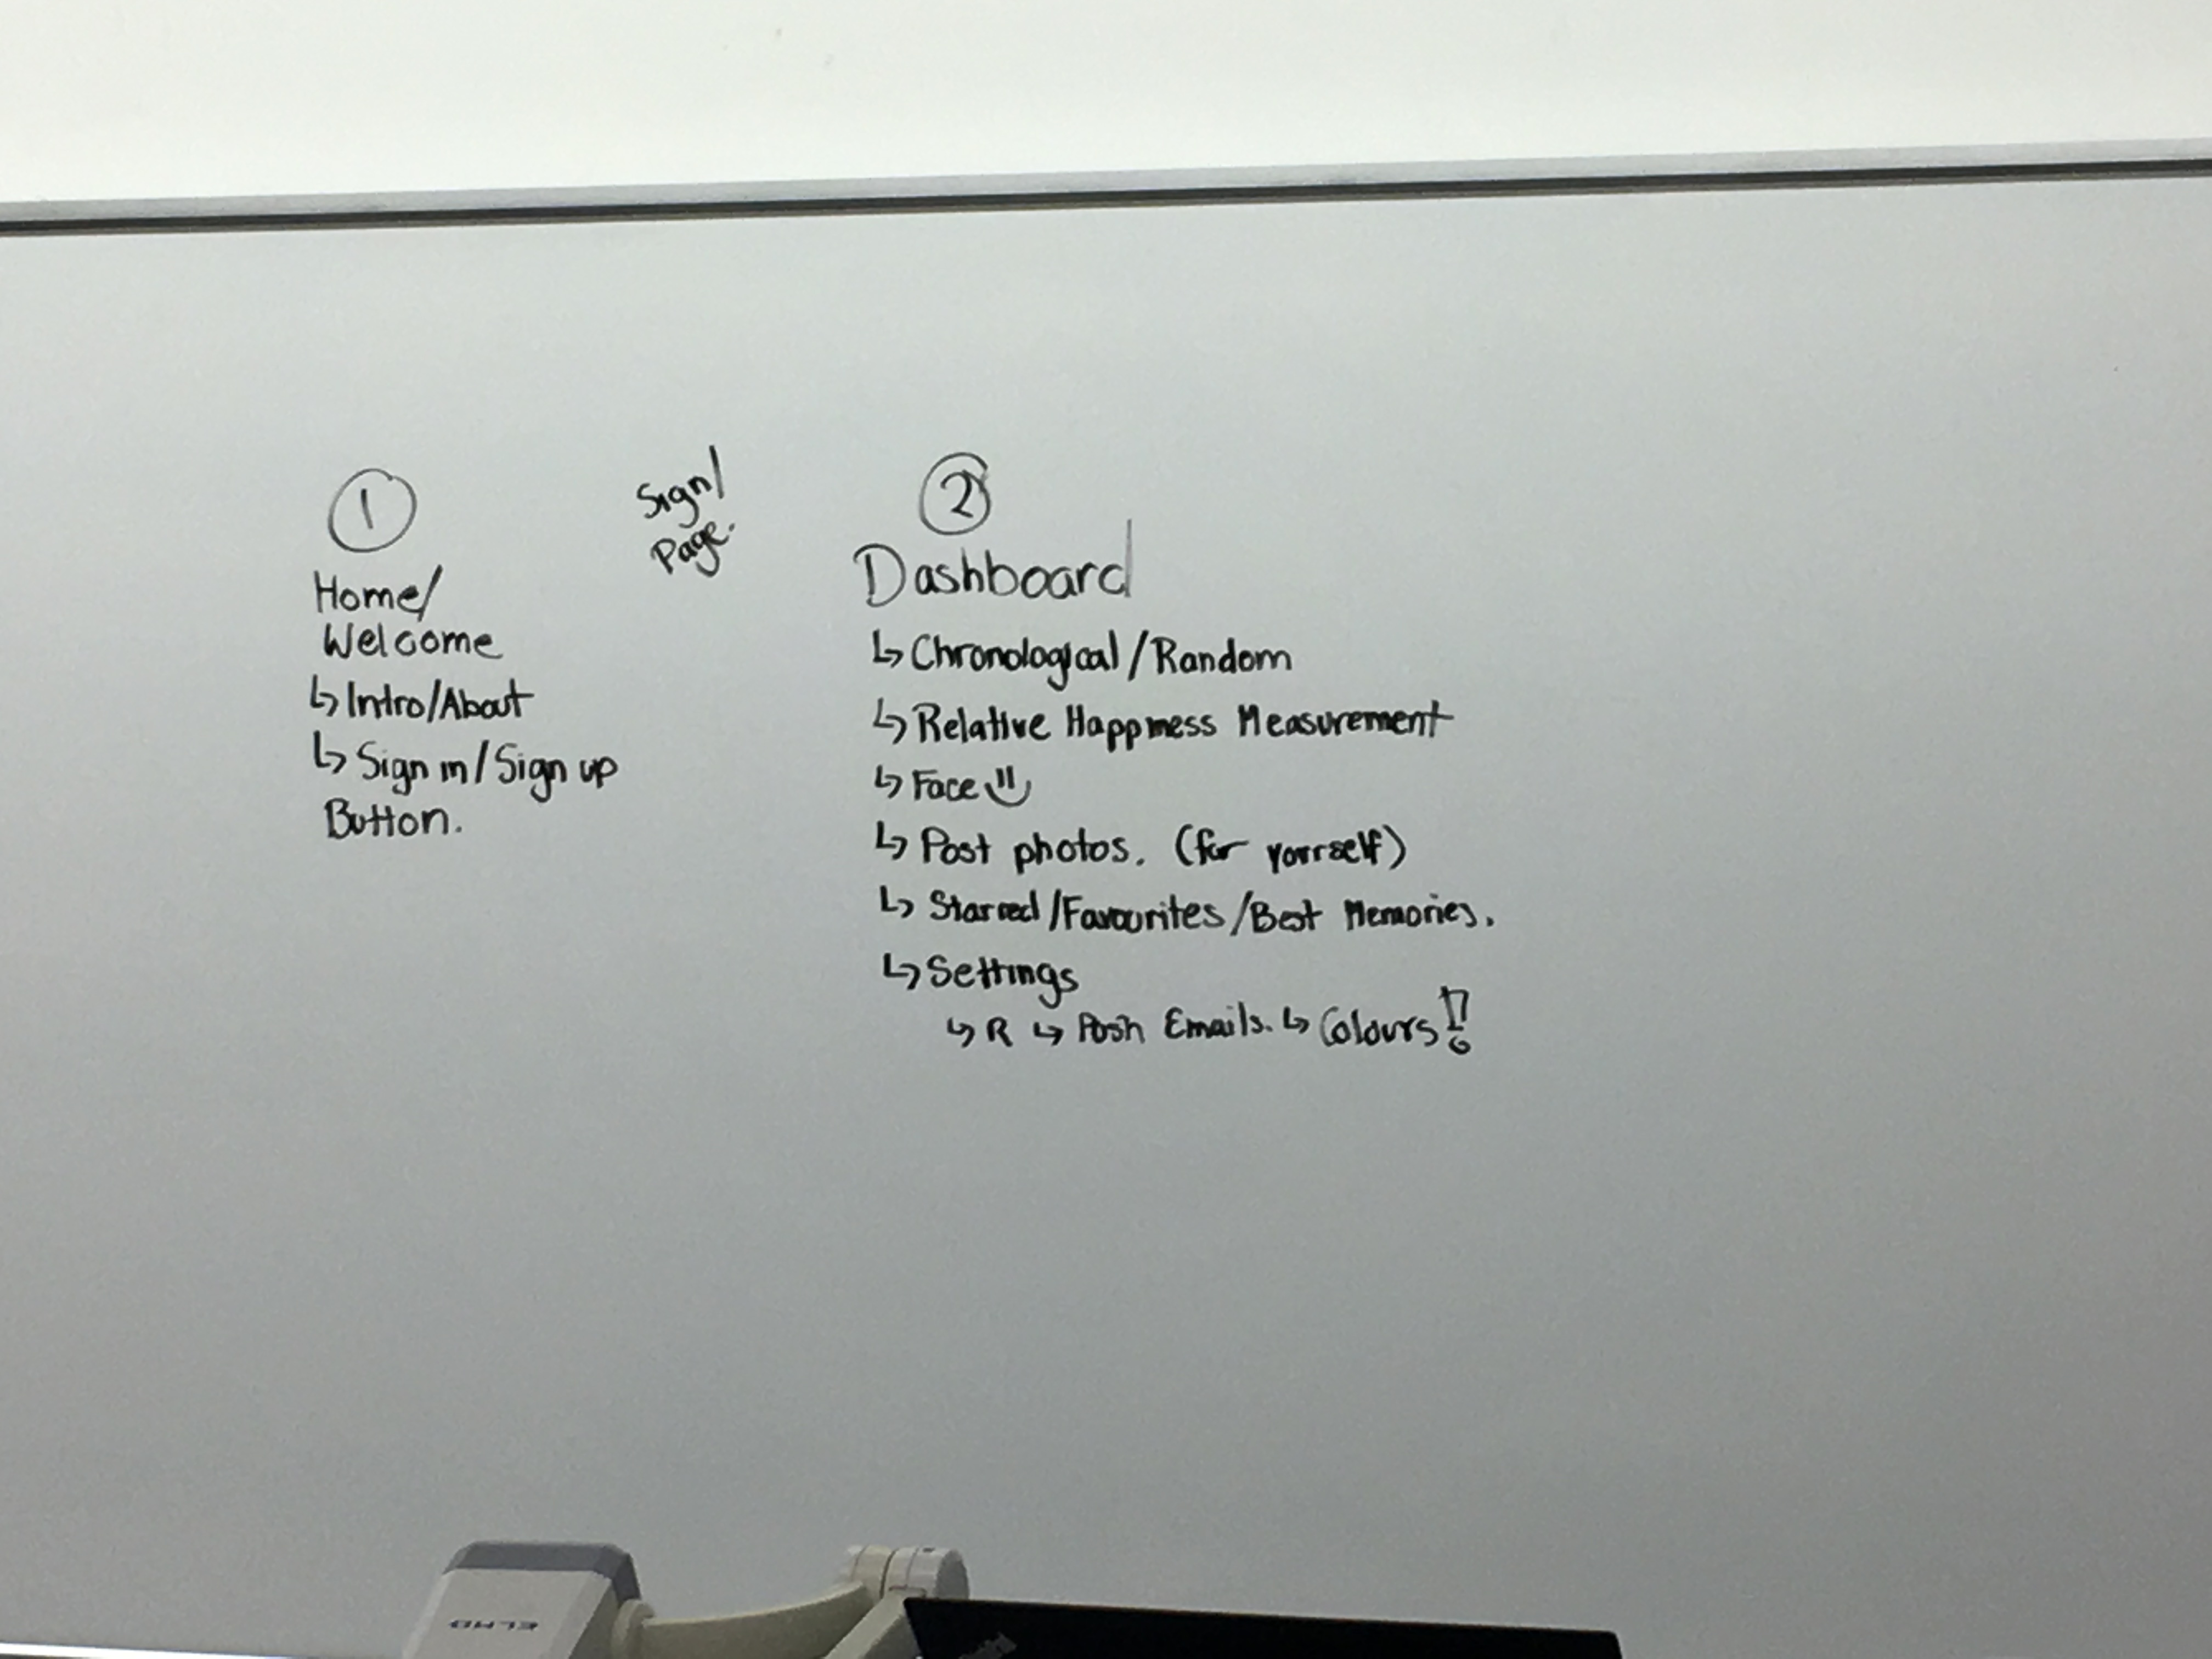 1
Home/
Welcome
↳ Intro/About
↳ Sign in/Sign up
Button.
Sign/
Page.
2
Dashboard
↳ Chronological/Random
↳ Relative Happiness Measurement
↳ Face
↳ Post photos. (for yourself)
↳ Starred/Favourites/Best Memories.
↳ Settings
↳ R ↳ Push Emails. ↳ Colours!!
ELMO